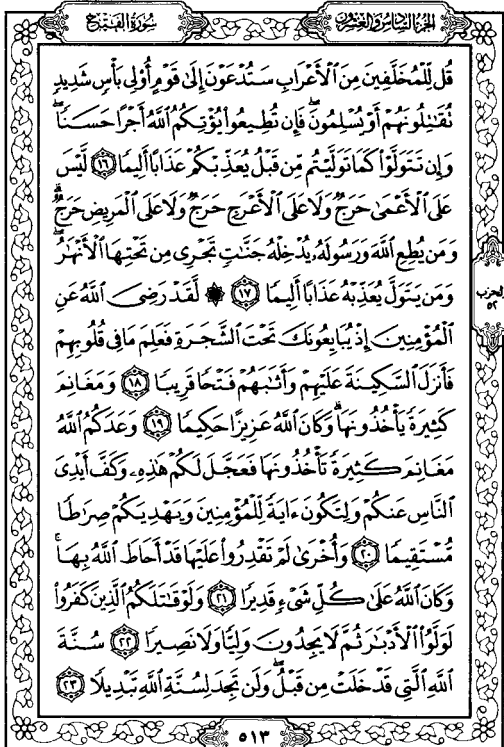 سُورَةُ الْفَتْحِ
الجُزْءُ السَّادِسُ وَالعِشْرُونَ
قُل لِّلْمُخَلَّفِينَ مِنَ ٱلْأَعْرَابِ سَتُدْعَوْنَ إِلَىٰ قَوْمٍ أُو۟لِى بَأْسٍ شَدِيدٍ
تُقَـٰتِلُونَهُمْ أَوْ يُسْلِمُونَ ۖ فَإِن تُطِيعُوا۟ يُؤْتِكُمُ ٱللَّهُ أَجْرًا حَسَنًا ۖ
وَإِن تَتَوَلَّوْا۟ كَمَا تَوَلَّيْتُم مِّن قَبْلُ يُعَذِّبْكُمْ عَذَابًا أَلِيمًا ١٦ لَّيْسَ
عَلَى ٱلْأَعْمَىٰ حَرَجٌ وَلَا عَلَى ٱلْأَعْرَجِ حَرَجٌ وَلَا عَلَى ٱلْمَرِيضِ حَرَجٌ ۗ
وَمَن يُطِعِ ٱللَّهَ وَرَسُولَهُۥ يُدْخِلْهُ جَنَّـٰتٍ تَجْرِى مِن تَحْتِهَا ٱلْأَنْهَـٰرُ ۖ
وَمَن يَتَوَلَّ يُعَذِّبْهُ عَذَابًا أَلِيمًا ١٧ ۞ لَّقَدْ رَضِىَ ٱللَّهُ عَنِ
ٱلْمُؤْمِنِينَ إِذْ يُبَايِعُونَكَ تَحْتَ ٱلشَّجَرَةِ فَعَلِمَ مَا فِى قُلُوبِهِمْ
فَأَنزَلَ ٱلسَّكِينَةَ عَلَيْهِمْ وَأَثَـٰبَهُمْ فَتْحًا قَرِيبًا ١٨ وَمَغَانِمَ
كَثِيرَةً يَأْخُذُونَهَا ۗ وَكَانَ ٱللَّهُ عَزِيزًا حَكِيمًا ١٩ وَعَدَكُمُ ٱللَّهُ
مَغَانِمَ كَثِيرَةً تَأْخُذُونَهَا فَعَجَّلَ لَكُمْ هَـٰذِهِۦ وَكَفَّ أَيْدِىَ
ٱلنَّاسِ عَنكُمْ وَلِتَكُونَ ءَايَةً لِّلْمُؤْمِنِينَ وَيَهْدِيَكُمْ صِرَٰطًا
مُّسْتَقِيمًا ٢٠ وَأُخْرَىٰ لَمْ تَقْدِرُوا۟ عَلَيْهَا قَدْ أَحَاطَ ٱللَّهُ بِهَا ۚ
وَكَانَ ٱللَّهُ عَلَىٰ كُلِّ شَىْءٍ قَدِيرًا ٢١ وَلَوْ قَـٰتَلَكُمُ ٱلَّذِينَ كَفَرُوا۟
لَوَلَّوُا۟ ٱلْأَدْبَـٰرَ ثُمَّ لَا يَجِدُونَ وَلِيًّا وَلَا نَصِيرًا ٢٢ سُنَّةَ
ٱللَّهِ ٱلَّتِى قَدْ خَلَتْ مِن قَبْلُ ۖ وَلَن تَجِدَ لِسُنَّةِ ٱللَّهِ تَبْدِيلًا ٢٣
الحزب
٥٢
٥١٣